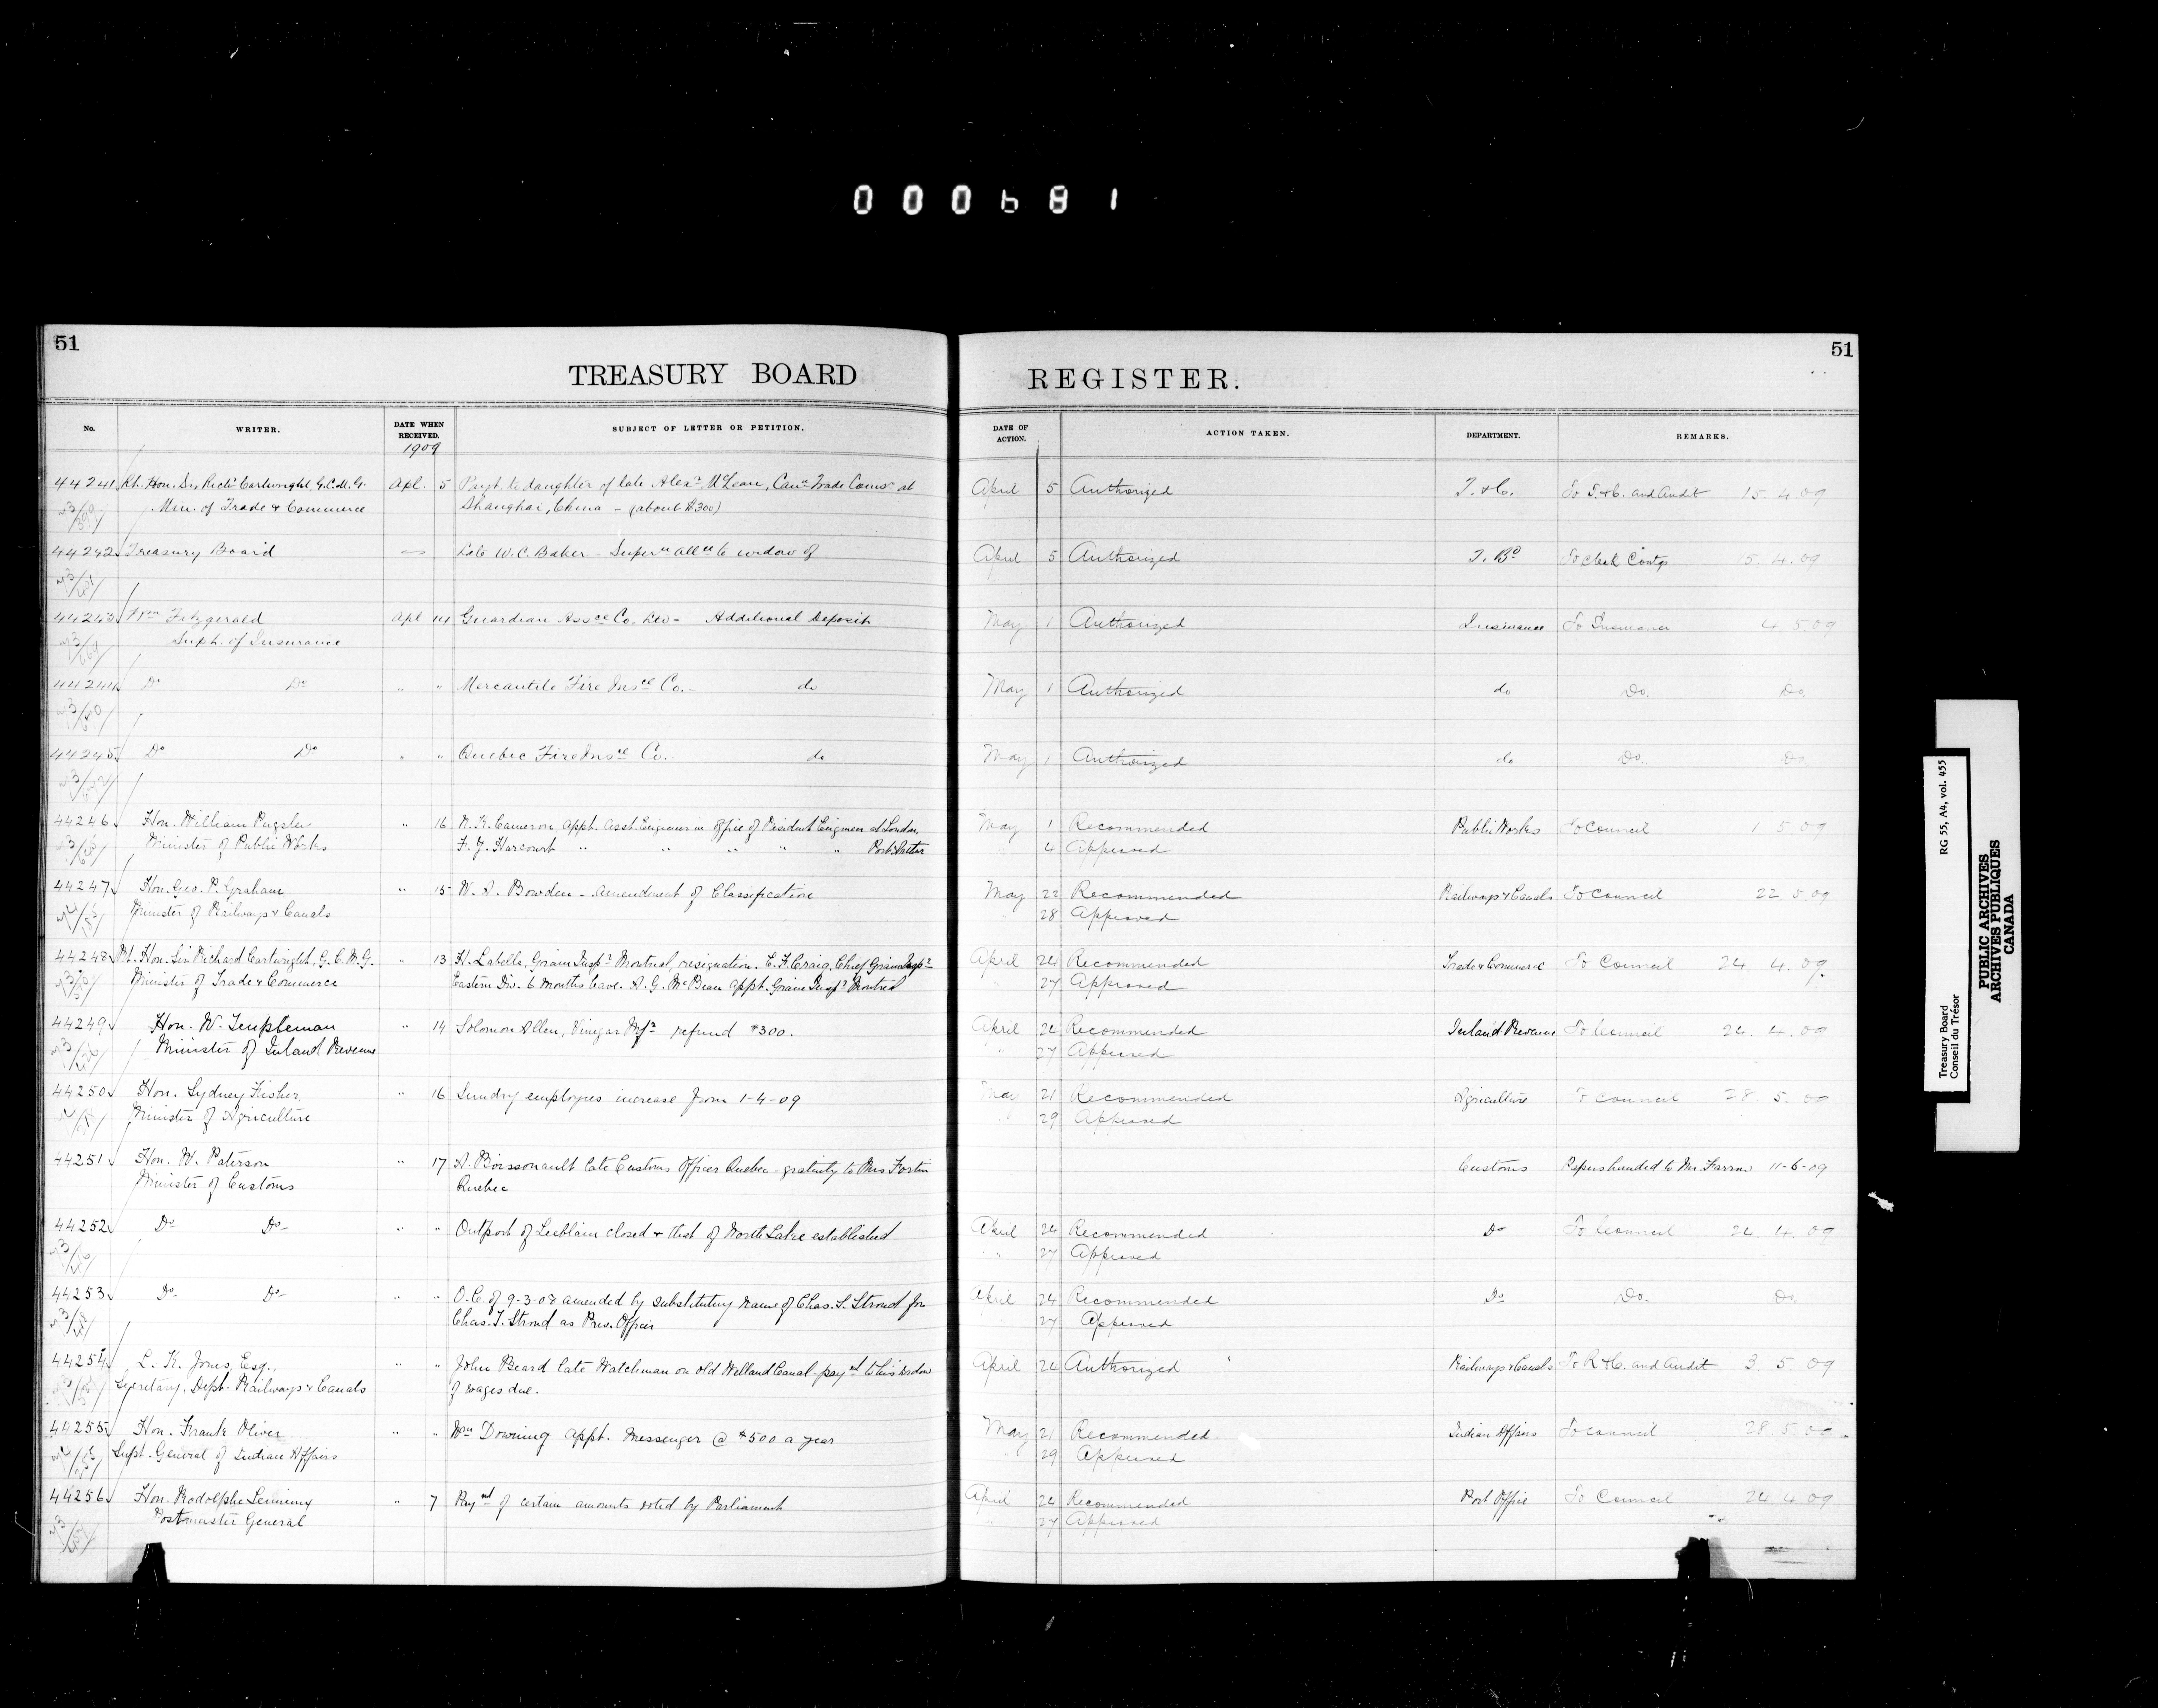 000681
51
TREASURY BOARD
No. WRITER. DATE WHEN RECEIVED. SUBJECT OF LETTER OR PETITION.
1909
44241 Rt. Hon. Sir Richd Cartwright, G.C.M.G. Apl. 5 Payt. to daughter of late Alexr McLean, Cann Trade Comsr at
Min. of Trade & Commerce Shanghai, China - (about $300)
44242 Treasury Board Late W.C. Baker - Supern allce to widow of
44243 Wm Fitzgerald Apl 14 Guardian Assce Co. Ltd - Additional Deposit
Supt. of Insurance
44244 Do Do " " Mercantile Fire Insce Co. - do
44245 Do Do " " Quebec Fire Insce Co. - do
44246 Hon. William Pugsley " 16 K. M. Cameron, Appt. Asst. Engineer in Office of Resident Engineer at London,
Minister of Public Works F. Y. Harcourt " " " " " Port Arthur
44247 Hon. Geo. P. Graham " 15 W. A. Bowden - Amendment of Classification
Minister of Railways & Canals
44248 Rt. Hon. Sir Richard Cartwright, G.C.M.G. " 13 H. Labelle, Grain Inspr Montreal, resignation. E. F. Craig, Chief Grain Inspr
Minister of Trade & Commerce Eastern Div. 6 Months leave. A. G. McBean appt. Grain Inspr Montreal
44249 Hon. W. Templeman " 14 Solomon Allen, Vinegar Mfr refund $300.
Minister of Inland Revenue
44250 Hon. Sydney Fisher, " 16 Sundry employees increase from 1-4-09
Minister of Agriculture
44251 Hon. W. Paterson " 17 A. Boissonault late Customs Officer Quebec - gratuity to Mrs Fortin
Minister of Customs Quebec
44252 Do Do - " " Outport of Leeblain closed & that of North Lake established
44253 Do - Do - " " O.C. of 9-3-08 amended by substituting name of Chas. S. Stroud for
Chas. T. Stroud as Prev. Officer
44254 L. K. Jones, Esq., " " John Beard late Watchman on old Welland Canal - payt to his widow
Secretary, Dept. Railways & Canals of wages due.
44255 Hon. Frank Oliver " " Wm Downing appt. Messenger @ $500 a year
Supt. General of Indian Affairs
44256 Hon. Rodolphe Lemieux " 7 Paynt of certain amounts voted by Parliament
Postmaster General
51
REGISTER.
DATE OF ACTION. ACTION TAKEN. DEPARTMENT. REMARKS.
April 5 Authorized T. & C. To T. & C. and Audit 15.4.09
April 5 Authorized T. Bd To Clerk Contgs 15.4.09
May 1 Authorized Insurance To Insurance 4 5 09
May 1 Authorized do Do. Do.
May 1 Authorized do Do. Do.
May 1 Recommended Public Works To Council 1 5.09
" 4 Approved
May 22 Recommended Railways & Canals To Council 22.5.09
" 28 Approved
April 24 Recommended Trade & Commerce To Council 24 4.09.
" 27 Approved
April 24 Recommended Inland Revenue To Council 24.4.09
" 27 Approved
May 21 Recommended Agriculture To Council 28 5.09
" 29 Approved
Customs Papers handed to Mr. Farrow 11-6-09
April 24 Recommended Do To Council 24.4.09
" 27 Approved
April 24 Recommended Do Do. Do.
27 Approved
April 24 Authorized Railways & Canals To R & C. and Audit 3.5.09
May 21 Recommended Indian Affairs To Council 28.5.09
" 29 Approved
April 24 Recommended Post Office To Council 24.4.09
" 27 Approved
Treasury Board RG 55, A4, vol. 455
Conseil du Trésor
PUBLIC ARCHIVES
ARCHIVES PUBLIQUES
CANADA